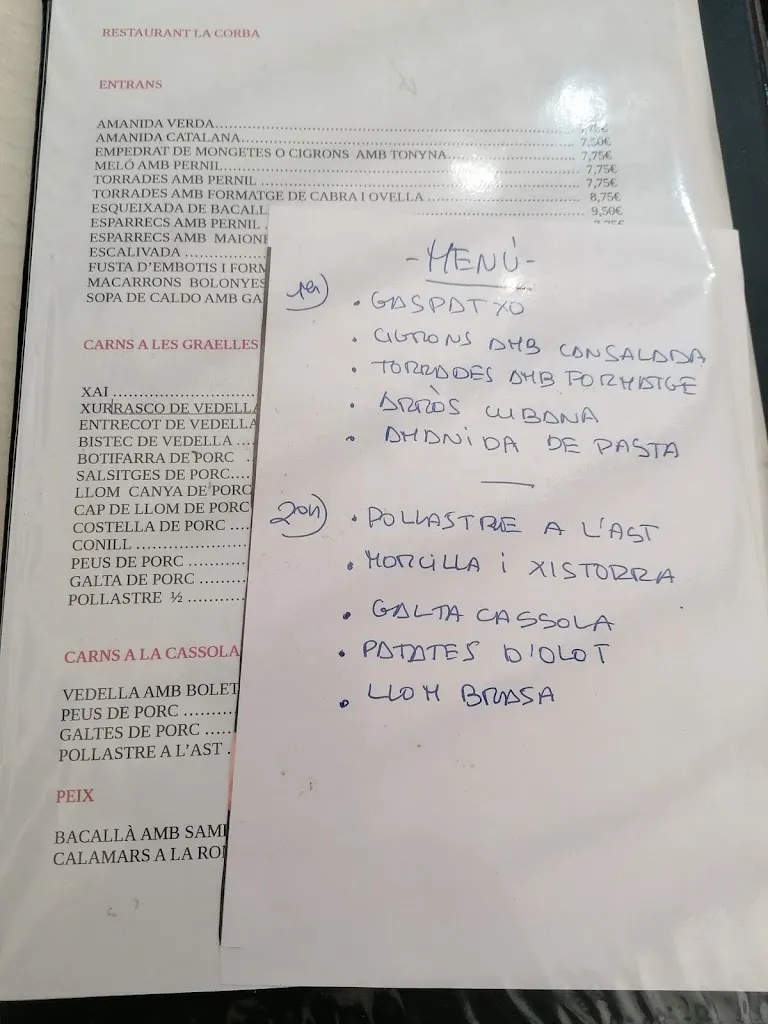 RESTAURANT LA CORBA
ENTRANS
AMANIDA VERDA
AMANIDA CATALANA 7,50€
EMPEDRAT DE MONGETES O CIGRONS AMB TONYNA 7,75€
MELÓ AMB PERNIL 7,75€
TORRADES AMB PERNIL 7,75€
TORRADES AMB FORMATGE DE CABRA I OVELLA 8,75€
ESQUEIXADA DE BACALL 9,50€
ESPARRECS AMB PERNIL
ESPARRECS AMB MAIONE
ESCALIVADA
FUSTA D'EMBOTIS I FORM
MACARRONS BOLONYES
SOPA DE CALDO AMB GA
CARNS A LES GRAELLES
XAI
XURRASCO DE VEDELLA
ENTRECOT DE VEDELLA
BISTEC DE VEDELLA
BOTIFARRA DE PORC
SALSITGES DE PORC
LLOM CANYA DE PORC
CAP DE LLOM DE PORC
COSTELLA DE PORC
CONILL
PEUS DE PORC
GALTA DE PORC
POLLASTRE ½
CARNS A LA CASSOLA
VEDELLA AMB BOLET
PEUS DE PORC
GALTES DE PORC
POLLASTRE A L'AST
PEIX
BACALLÀ AMB SAM
CALAMARS A LA RO
-MENÚ-
1er)
• GASPATXO
• CIGRONS AMB CANSALADA
• TORRADES AMB FORMATGE
• ARRÒS CUBANA
• AMANIDA DE PASTA
2on)
• POLLASTRE A L'AST
• MORCILLA i XISTORRA
• GALTA CASSOLA
• PATATES D'OLOT
• LLOM BRASA